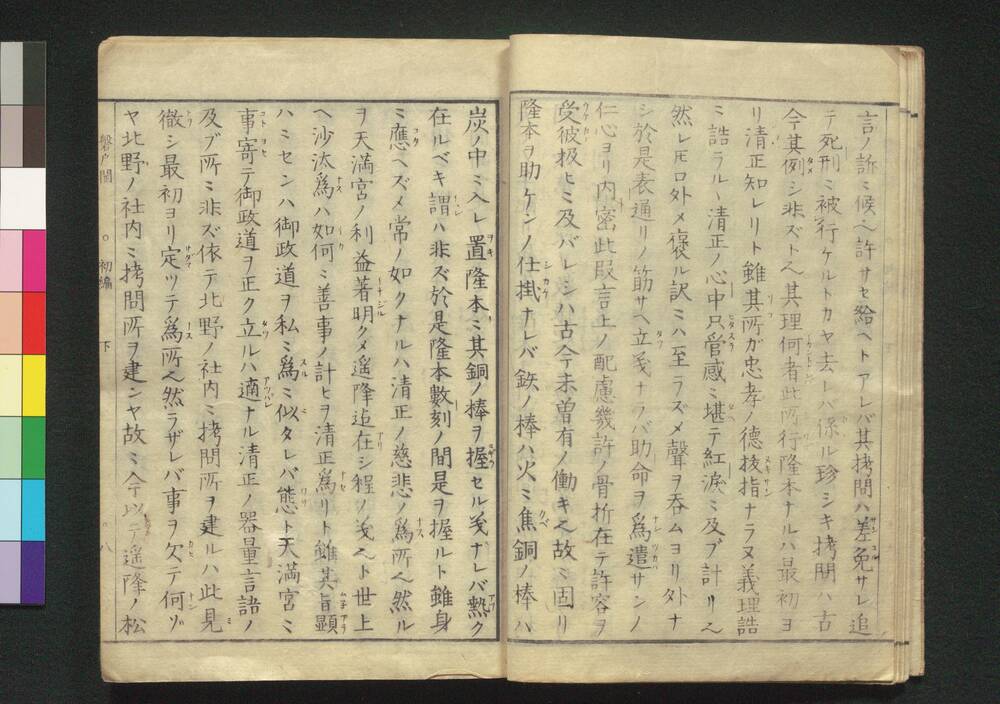 言ノ訴ミ候ヘ許サセ給ヘトアレバ其拷問ハ差免サレ追
テ死刑ミ被行ケルトカヤ去レバ係ル珍シキ拷問ハ古
今其例シ非ズト其理何者此所行隆本ナルハ最初ヨ
リ清正知レリト雖其所ガ忠孝ノ德拔指ナラヌ義理詰
ミ詰ラルヽ清正ノ心中只管感ミ堪テ紅涙ミ及ブ計リ
然レ𪜈口外メ褒ル訳ミハ至ラズメ聲ヲ呑ムヨリ外ナ
シ於是表通リノ筋サヘ立ナラバ助命ヲ為遣サンノ
仁心ヨリ内密此段言上ノ配慮幾許ノ骨折在テ許容ヲ
受彼扱ヒミ及バレシハ古今未曽有ノ働キ故ミ固リ
隆本ヲ助ケンノ仕掛ナレバ鉄ノ棒ハ火ミ焦銅ノ棒ハ
炭ノ中ミ入レ置隆本ミ其銅ノ棒ヲ握セルナレバ熱ク
在ルベキ謂ハ非ズ於是隆本數刻ノ間是ヲ握ルト雖身
ミ應ヘズメ常ノ如クナルハ清正ノ慈悲ノ為所然ル
ヲ天満宮ノ利益著明クメ遥隆近在シ程ノト世上
ヘ沙汰為ハ如何ミ善事ノ計ヒヲ清正為リト雖其旨顕
ハミセンハ御政道ヲ私ミ為ミ似タレバ態ト天満宮ミ
事寄テ御政道ヲ正ク立ルハ適ナル清正ノ器量言語ノ
及ブ所ミ非ズ依テ北野ノ社内ミ拷問所ヲ建ルハ此見
徹シ最初ヨリ定ツテ為所然ラザレバ事ヲ欠テ何ゾ
ヤ北野ノ社内ミ拷問所ヲ建ンヤ故ミ今以テ遥隆ノ松
初編 下 八